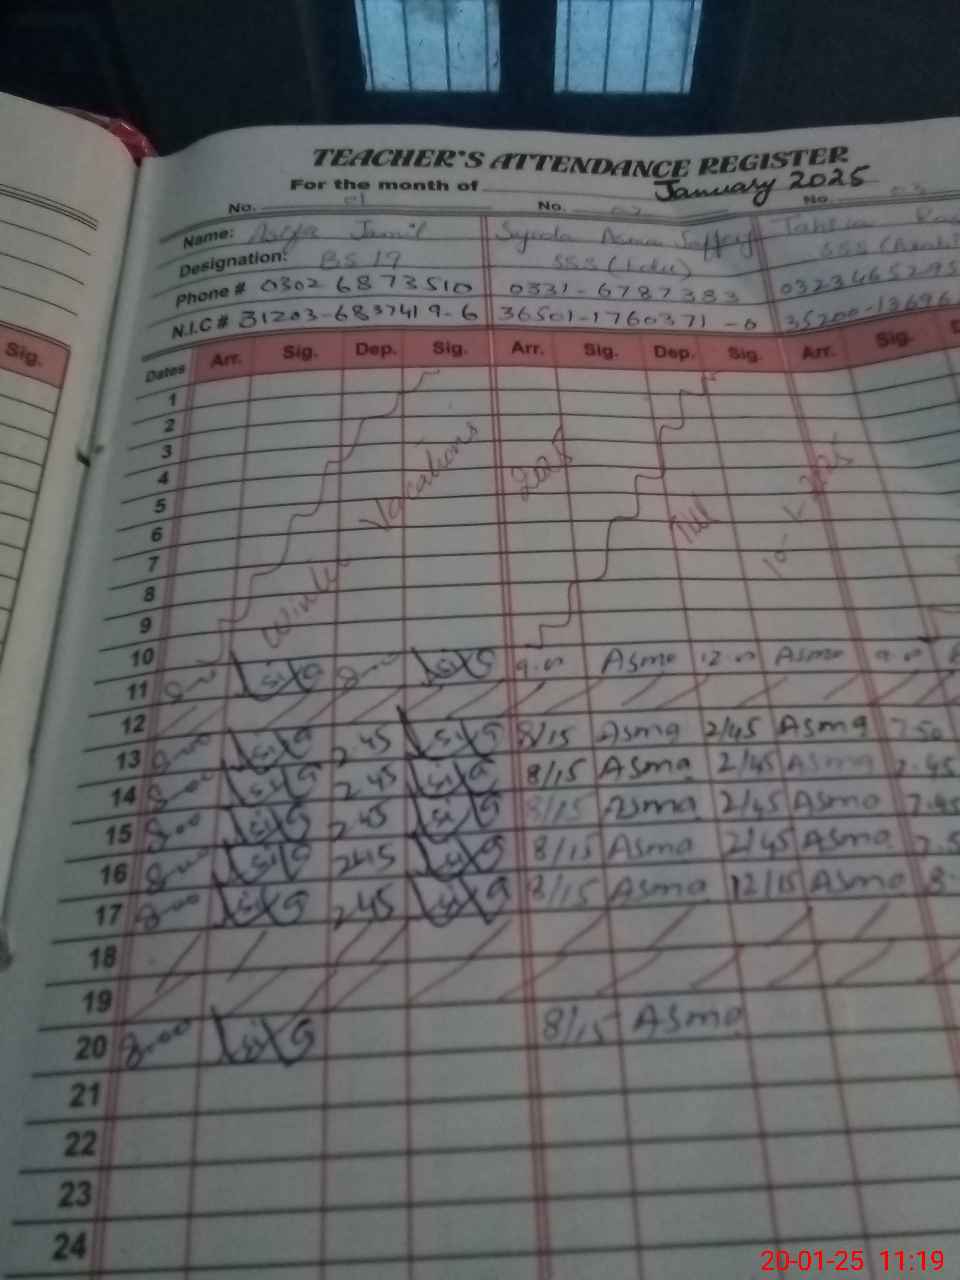 TEACHER'S ATTENDANCE REGISTER
For the month of January 2025
No. 01 No. 02 No. 03
Name: Jamil Syeda Asma
Designation: BS 19 SSS SSS
Phone # 0302 6873510 0331-6787383
N.I.C # 31203-6837419-6 36501-1760371-0
Sig.
Dates Arr. Sig. Dep. Sig. Arr. Sig. Dep. Sig. Arr. Sig. D
1
2
3
4
5
6
7
8
9
Winter Vacations 2025 Till 10-1-2025
10
11 9.00 Asma 12.00 Asma 9.00
12
13 8.00 2.45 8/15 Asma 2/45 Asma 7.50
14 8.00 2.45 8/15 Asma 2/45 Asma 7.45
15 8.00 2.45 8/15 Asma 2/45 Asma 7.45
16 8.00 2.45 8/15 Asma 2/45 Asma 7.5
17 8.00 2.45 8/15 Asma 12/15 Asma 8.
18
19
20 8.00 8/15 Asma
21
22
23
24
20-01-25 11:19